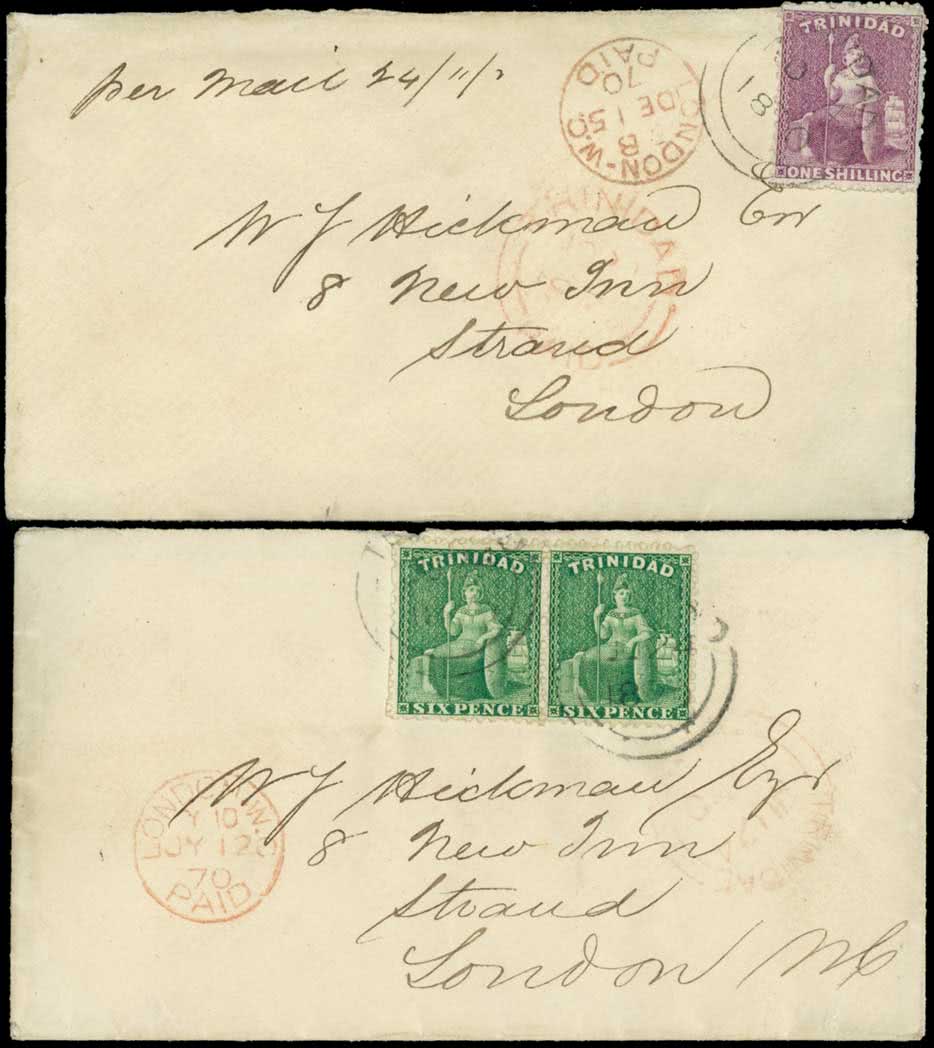 per Mail 24/11/
TRINIDAD
ONE SHILLING
LONDON-W.C
B
DE 15
70
PAID
TRINIDAD
W J Hickman Esr
8 New Inn
Strand
London
TRINIDAD
SIX PENCE
TRINIDAD
SIX PENCE
W J Hickman Esqr
8 New Inn
Strand
London WC
LONDON W.
JY 12
70
PAID
TRINIDAD